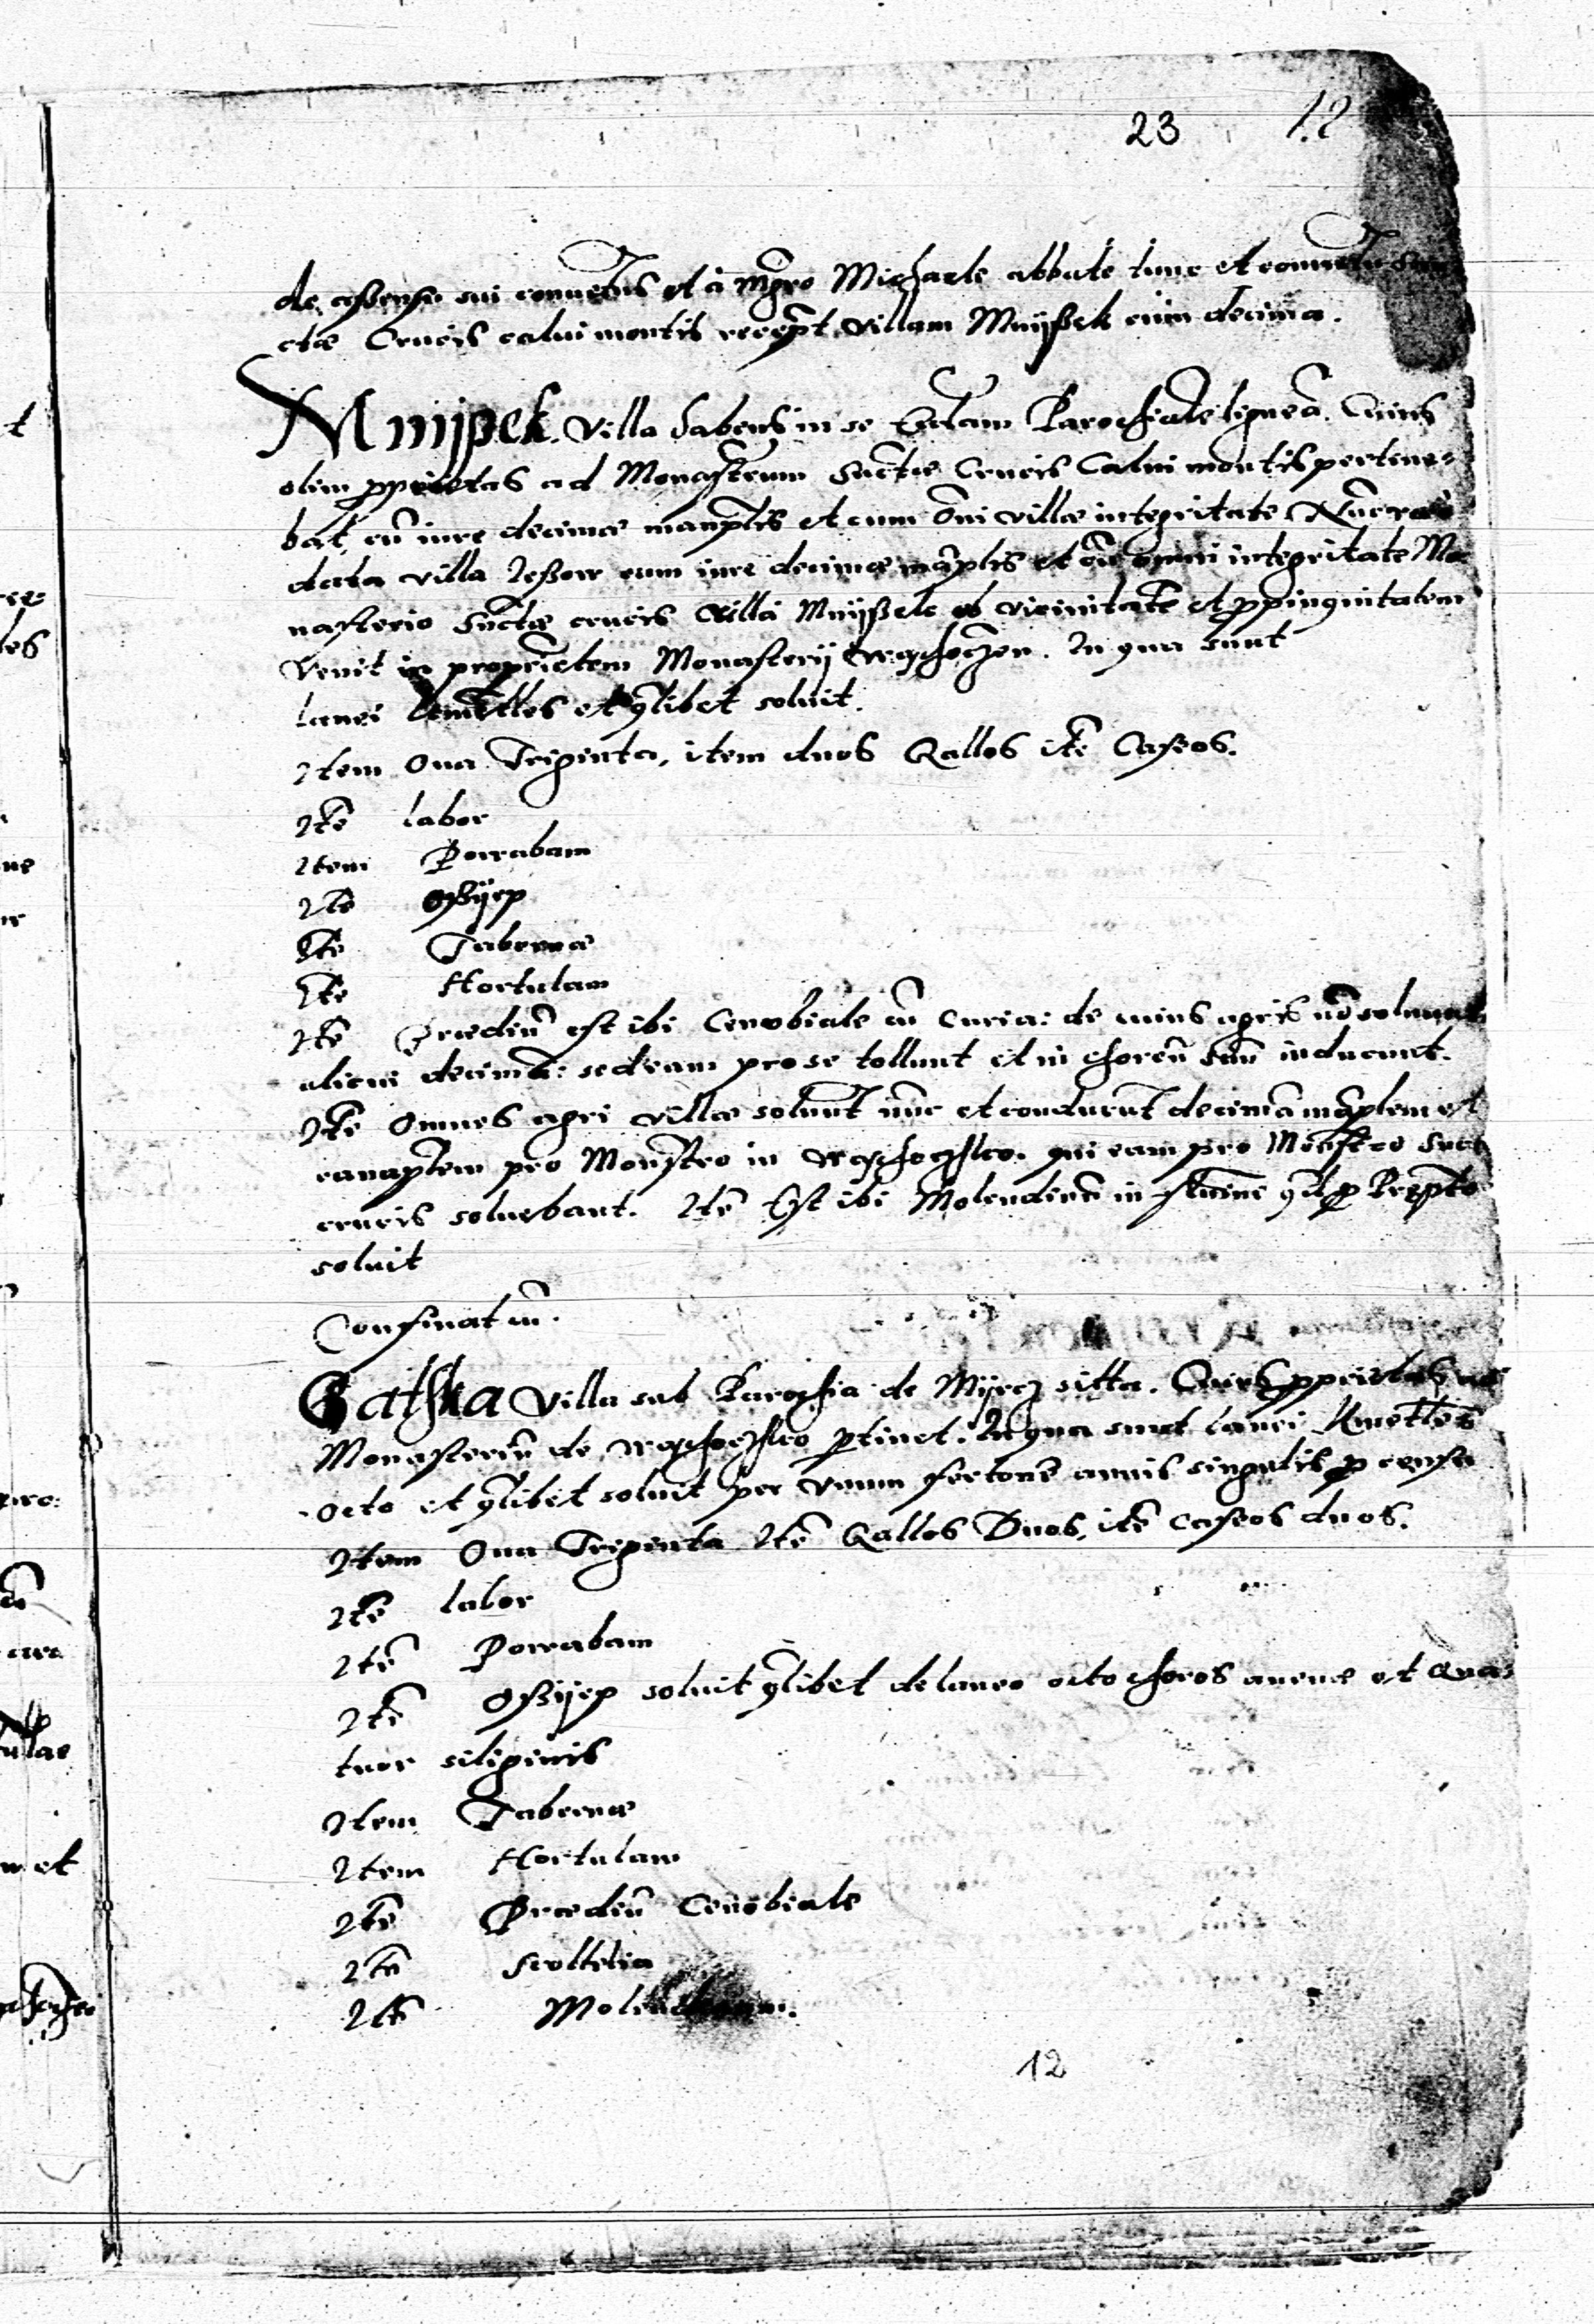 23 12
de assensu sui conuētus et à mgro Michaele abbate tunc et conuentu San
ctæ Crucis calui montis recepit villam Mnijßek cum decima.
Mnijßek. Villa habens in se Ecclām Parochialē ligneā. Cuius
olim pprietas ad Monasterium Sanctæ Crucis Calui montis pertine-
bat, cū iure decimæ manplis et cum oni villæ integritate
data villa Jeßow cum iure decimæ māplis et cū omni integritate Mo
nasterio Sanctæ crucis Villa Mnijßek ob vicinitatē et ppinquitatem
Venit in proprietem Monasterij Wąchoczen. In qua sunt
lanei Cmetłes et qlibet soluit.
Item Oua Triginta, item duos Gallos itē Caseos.
Itē labor
Item Powabam
Itē Oßijep
Itē Tabernæ
Itē Hortulani
Itē Prædiū est ibi Cenobiale cū Curia: de cuius agris nō soluunt
alicui decimā: sed eam pro se tollunt et in horreū suū inducunt.
Itē Omnes agri villæ soluunt nūc et conducunt decimā māplem et
canaplem pro Monastro in Wąchoczsko. qui eam pro Monstro Snct
crucis soluebant. Itē Est ibi Molendinū in flumine
soluit
Consinat cū.
Gatska Villa sub Parochia de Mijrcz sitta. Cuius pprietas ad
Monasteriū de Wąchoczsko ptinet. In qua sunt lanei Kmetłes
octo et qlibet soluit per vnum fertonē annis singulis p censu
Item Oua Triginta Itē Gallos Duos, itē caseos duos.
Itē labor
Itē Powabam
Itē Oßijep soluit qlibet de laneo octo choros auenæ et qua-
tuor siliginis
Item Tabernæ
Item Hortulani
Itē Prædiū Cenobiale
Itē Scoltetia
Itē Molendinum.
12